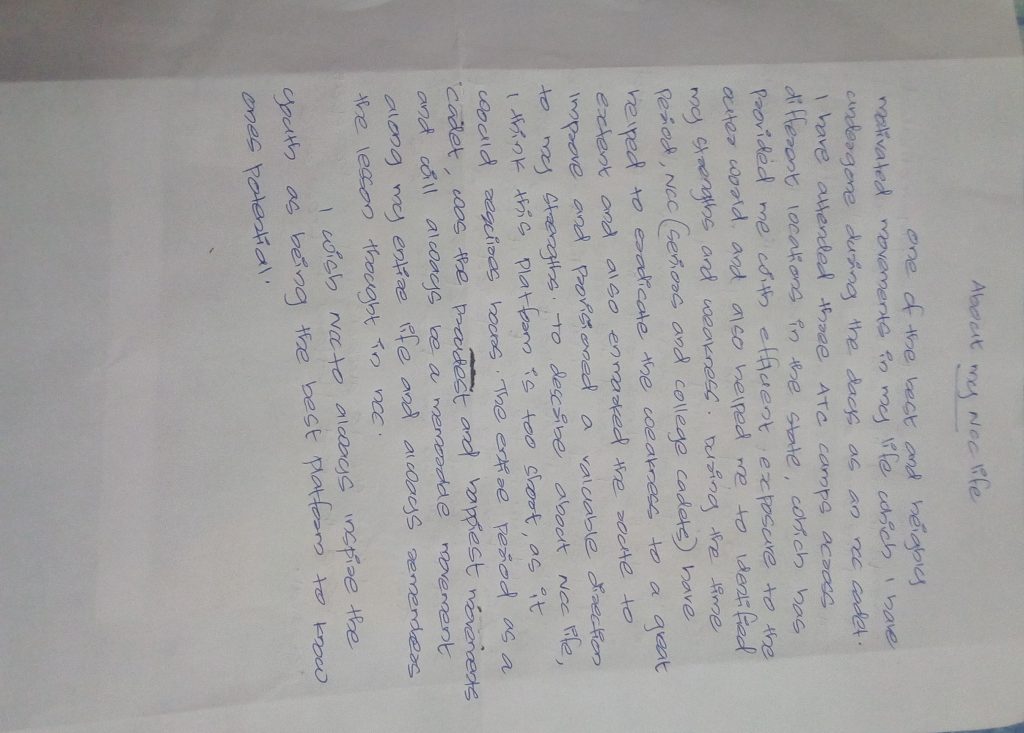 About my Ncc life
one of the best and heighly
motivated movements in my life which I have
undergone during the days as an ncc cadet.
I have attended three ATC camps across
different locations in the state, which has
provided me with efficient exposure to the
outer world and also helped me to identified
my strengths and weakness. During the time
period, NCC (seniors and college cadets) have
helped to eradicate the weakness to a great
extent and also enmarked the route to
improve and provisioned a valuable direction
to my strengths. to describe about Ncc life,
I think this platform is too short, as it
would requires hours. The entire period as a
'cadet', was the proudest and happiest movements
and will always be a memorable movement
along my entire life and always remembers
the lesson thought in ncc.
I wish Ncc to always inspire the
youth as being the best platform to know
ones potential'.